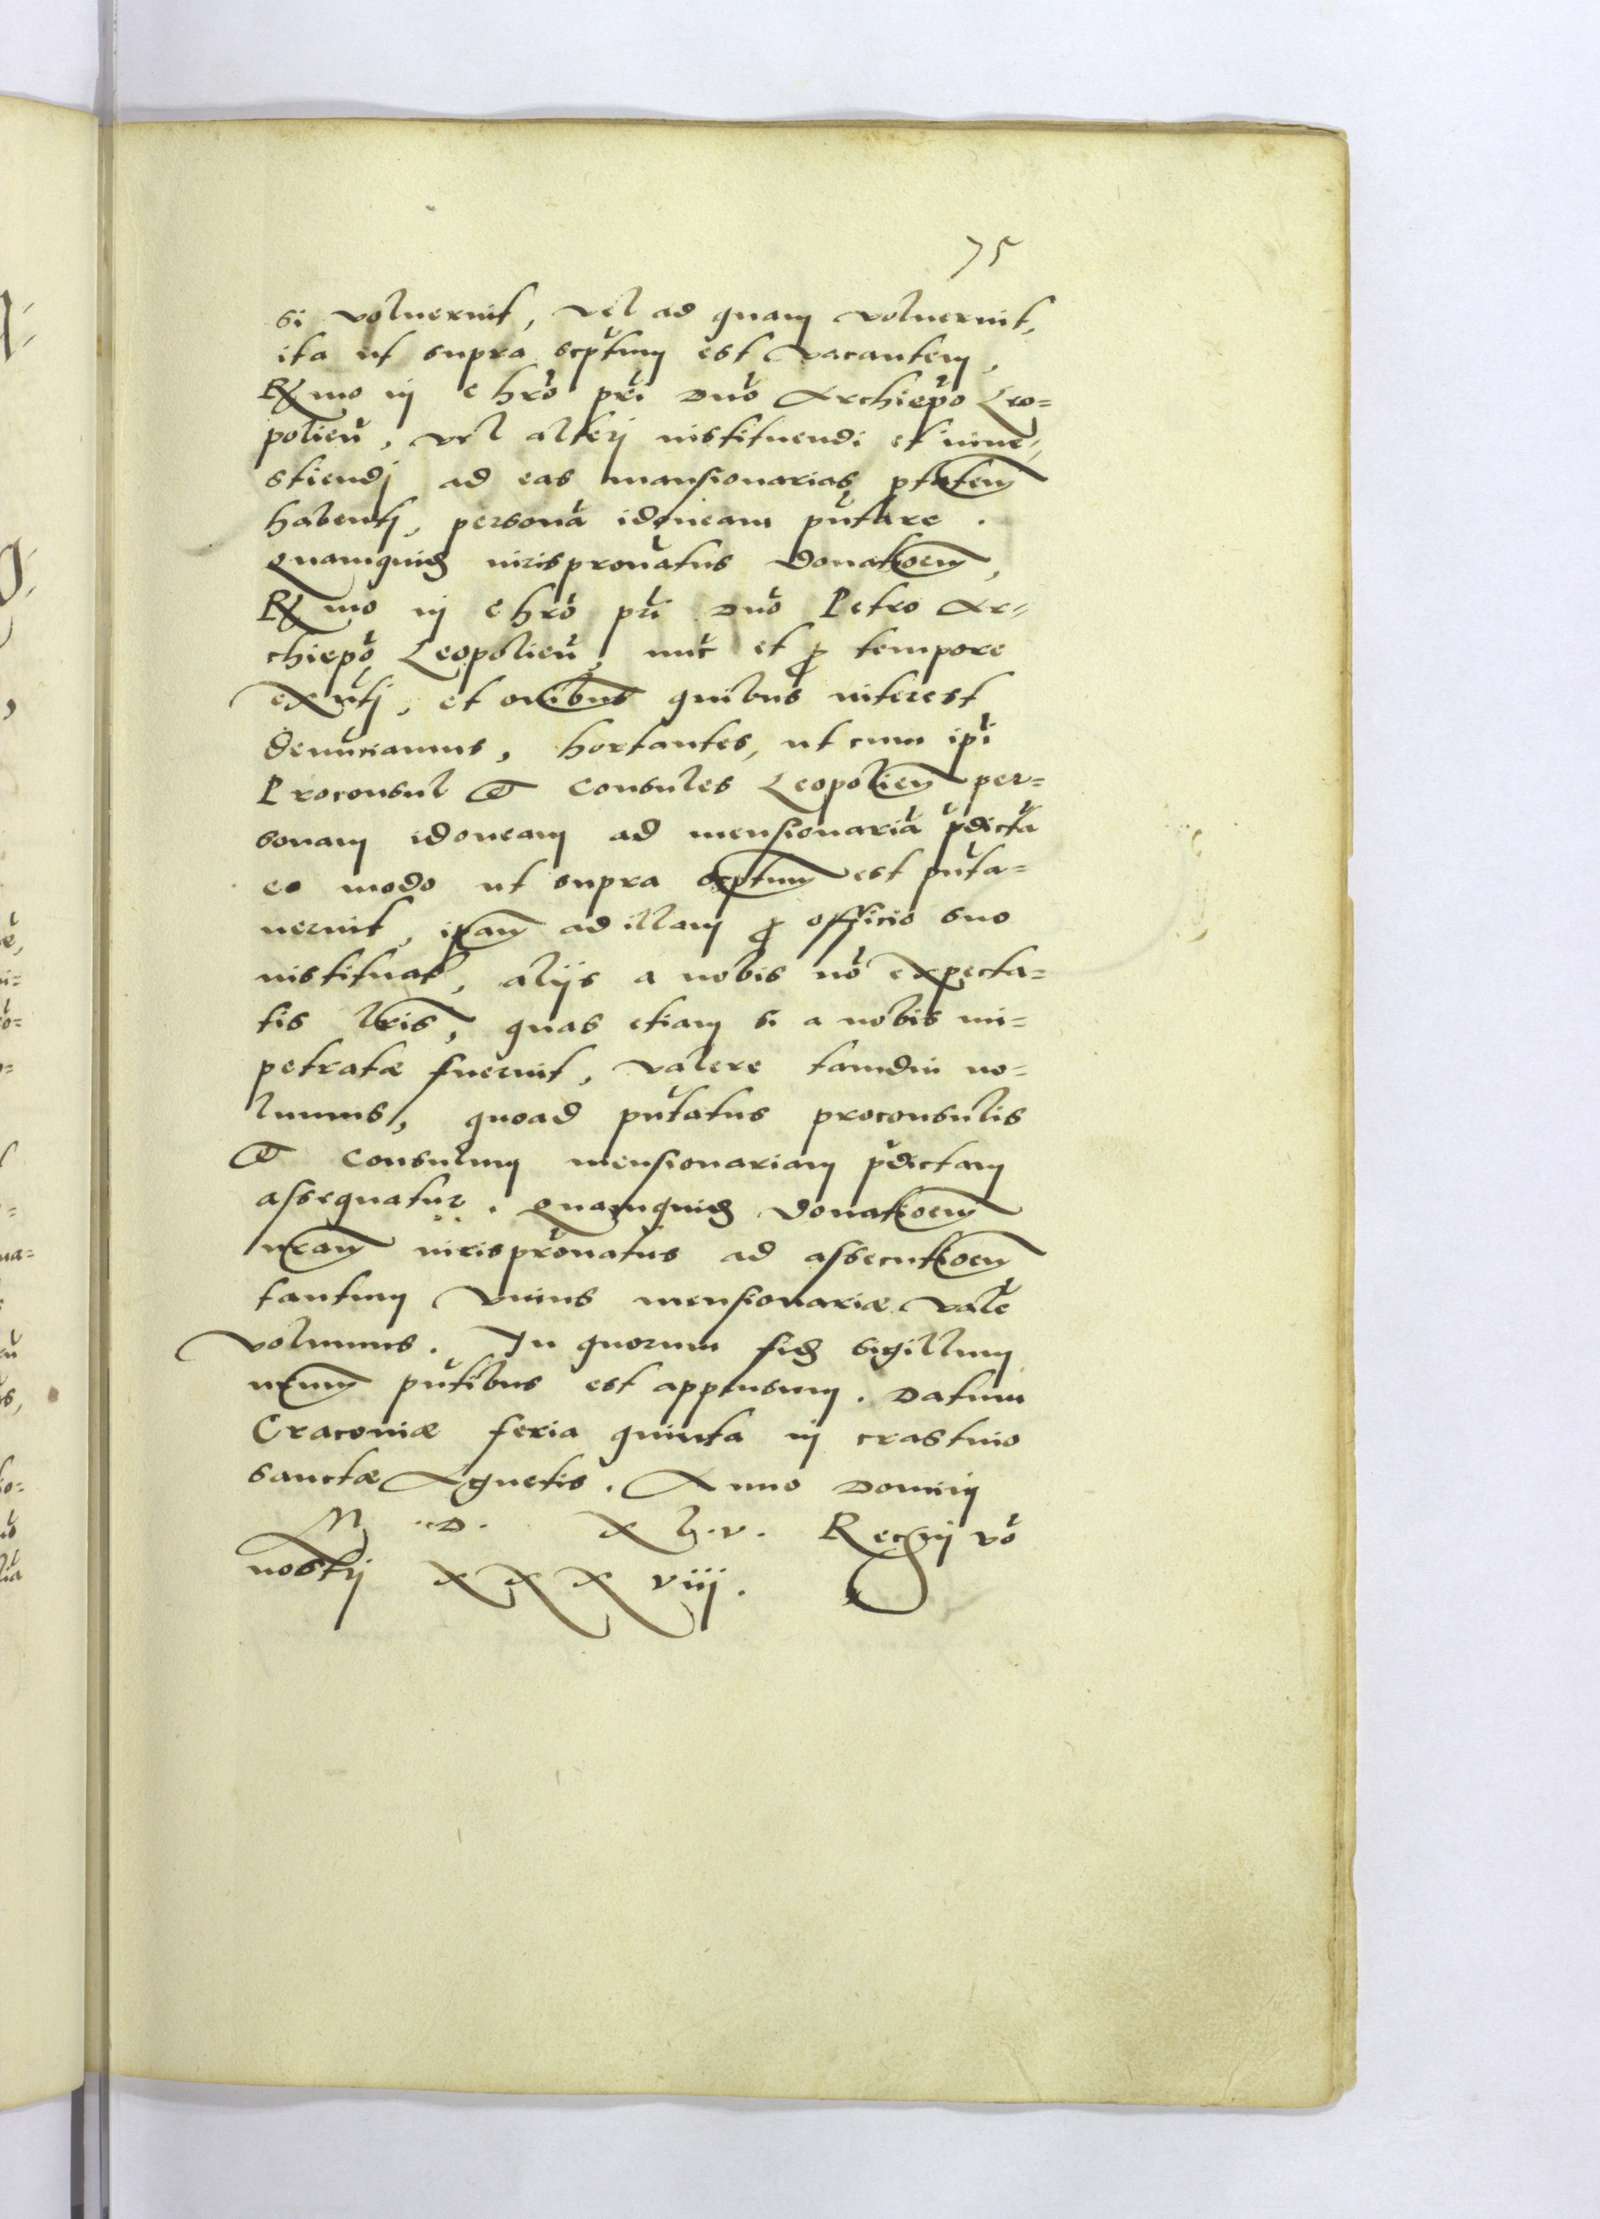 75
si voluerint, vel ad quam voluerint,
ita ut supra scptum est vacantem,
Rmo in chro pri dno Archiepo Leo=
polien, vel alteri instituendi et inve=
stiendi ad eas mansionarias ptatem
habenti, persona idoneam pntare.
Quamquid iurispronatus donatioem,
Rmo in chro pri dno Petro Ar=
chiepo Leopolien, nuc et p tempore
exnti, et oribus quibus interest
denuciamus, hortantes, ut cum ipi
Proconsul et Consules Leopolien per=
sonam idoneam ad mensionaria pdicta
eo modo ut supra scptum est pnta=
uerint, ipam ad illam p officio suo
instituat, alijs a nobis no expecta=
tis lris, quas etiam si a nobis im=
petratæ fuerint, valere tamdiu no=
lumus, quoad pntatus proconsulis
et Consulum mensionariam pdictam
assequatur. Quamquid donatioem
nram iurispronatus ad assecutioem
tantum vnius mensionariæ vale
volumus. In quorum fid sigillum
nrum pntibus est appensum. Datum
Cracoviæ feria quinta in crastino
sanctæ Agnetis. Anno Domini
M .D. xl.v. Regni vo
nostri xxxviij.